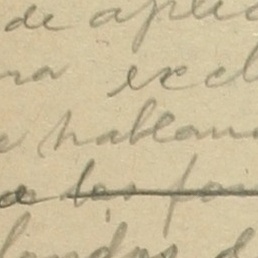 de aplic
na excl
e hablan
a los pai
landos d